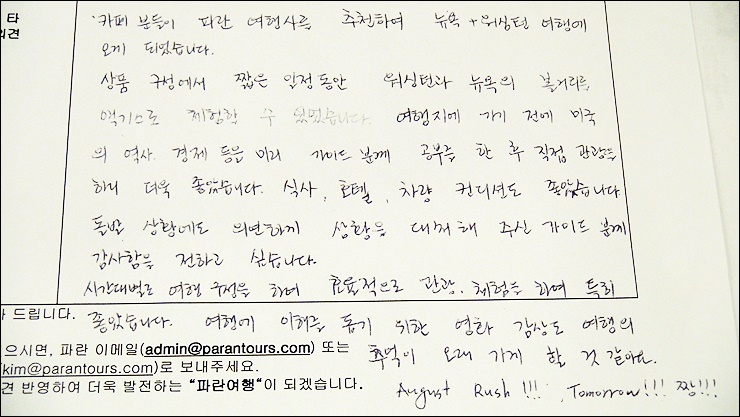 타
의견
카페 분들이 파란 여행사를 추천하여 뉴욕 + 워싱턴 여행에
오게 되었습니다.
상품 구성에서 짧은 일정동안 워싱턴과 뉴욕의 볼거리를
엑기스로 체험할 수 있었습니다. 여행지에 가기 전에 미국
의 역사. 경제 등은 미리 가이드 분께 공부를 한 후 직접 관광을
하니 더욱 좋았습니다. 식사, 호텔, 차량 컨디션도 좋았습니다
돌발 상황에도 의연하게 상황을 대처해 주신 가이드 분께
감사함을 전하고 싶습니다.
시간대별로 여행 구성을 하여 효율적으로 관광. 체험을 하여 특히
드립니다. 좋았습니다. 여행에 이해를 돕기 위한 영화 감상도 여행의
으시면, 파란 이메일(admin@parantours.com) 또는 추억이 오래 가게 할 것 같아요.
kim@parantours.com)로 보내주세요.
견 반영하여 더욱 발전하는 "파란여행"이 되겠습니다. August Rush !!! , Tomorrow!!! 짱!!!